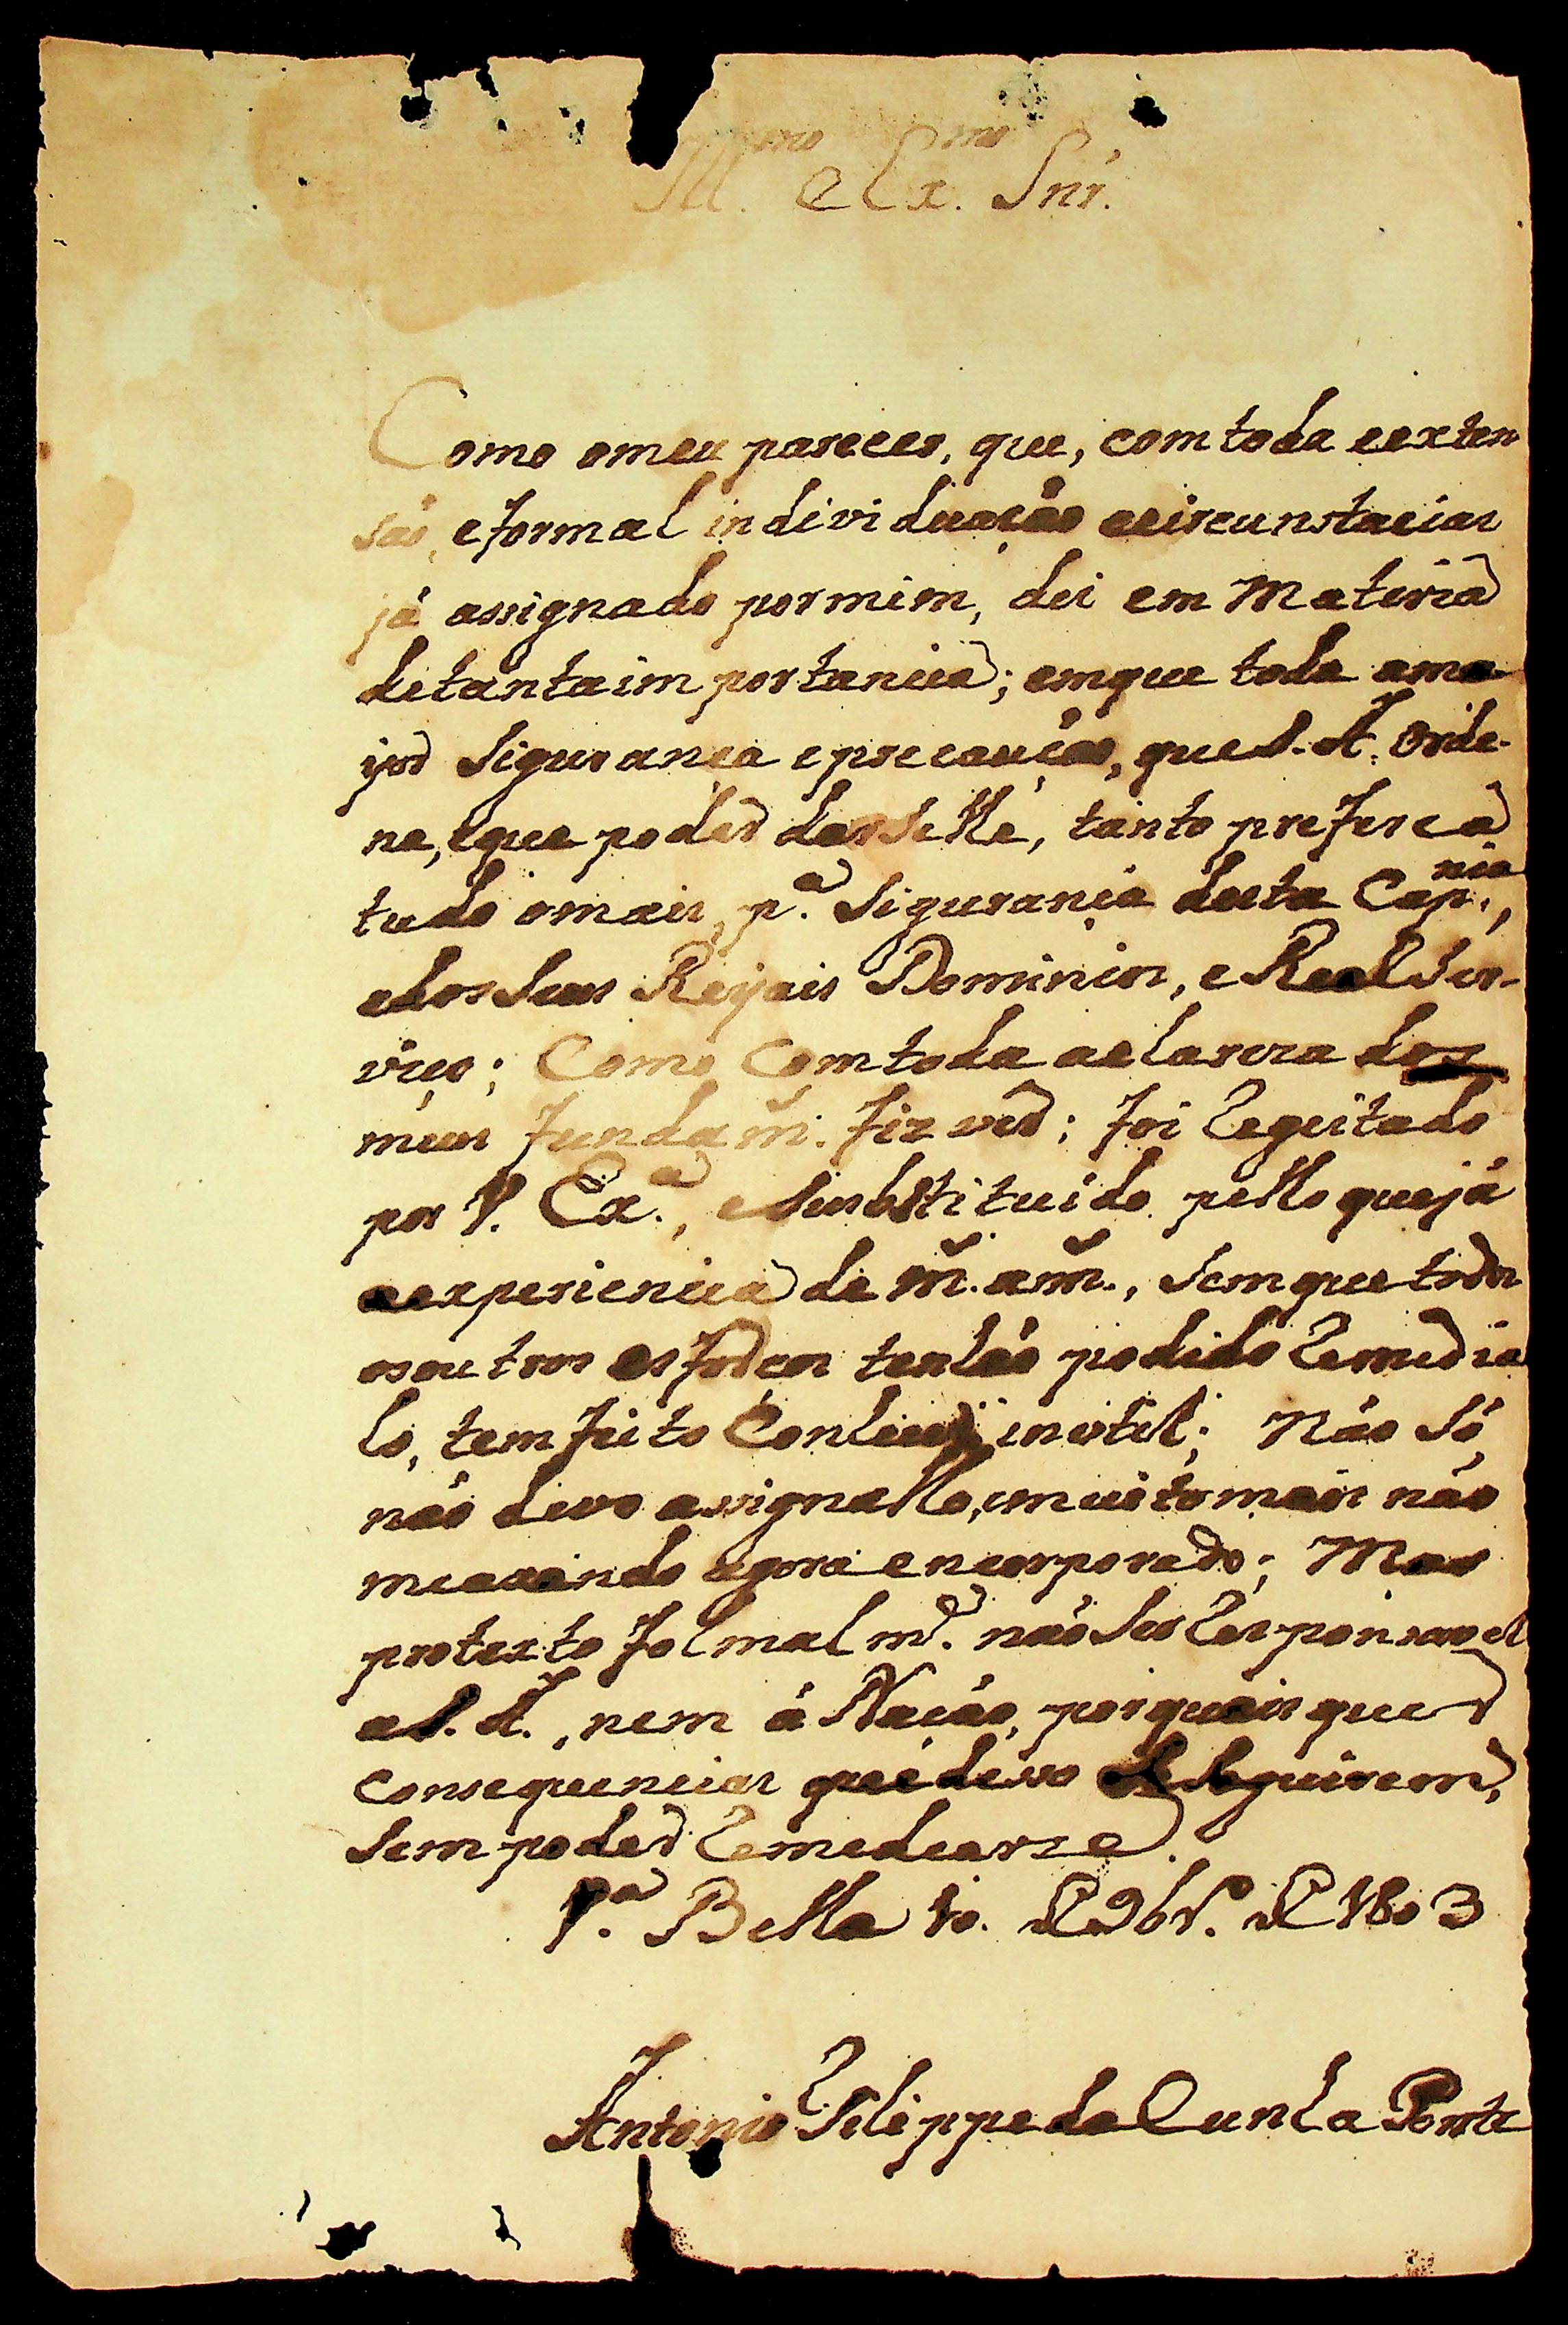 Ill.mo e Ex.mo Snr.
Como omeu parecer, que, comtoda eexten
são, eformal individuação ecircunstacias
já assignado pormim, dei em Materia
detanta importancia; emque toda ama-
yor Sigurança eprecaução, queS. A. Orde-
ne, eque poder darselhe, tanto prefere a
tudo omais, p.a Sigurança desta Cap.nia,
edosSeus Reyais Dominios, eRealSer-
viço; Como Comtoda aclareza dos
meus fundam. fiz ver; foi Regeitado
por V. Ex.a, eSusbstituido pello quejá
aexperiencia de m. am., Semque todos
osoutros esforços tenhão podido Remedia
lo, temfeito Conhecer inutil; Não Só
não devo assignallo, emuito mais não
meaxando agora encorporado; Mas
protexto folmalm.e não Ser Responsavel
aS. A., nem á Nação, porquais quer
consequencias que déso Seseguirem,
Sempoder Remediarse.
V.a Bella 10. de 9br.o de 1803
Antonio Felippe da Cunha Ponte